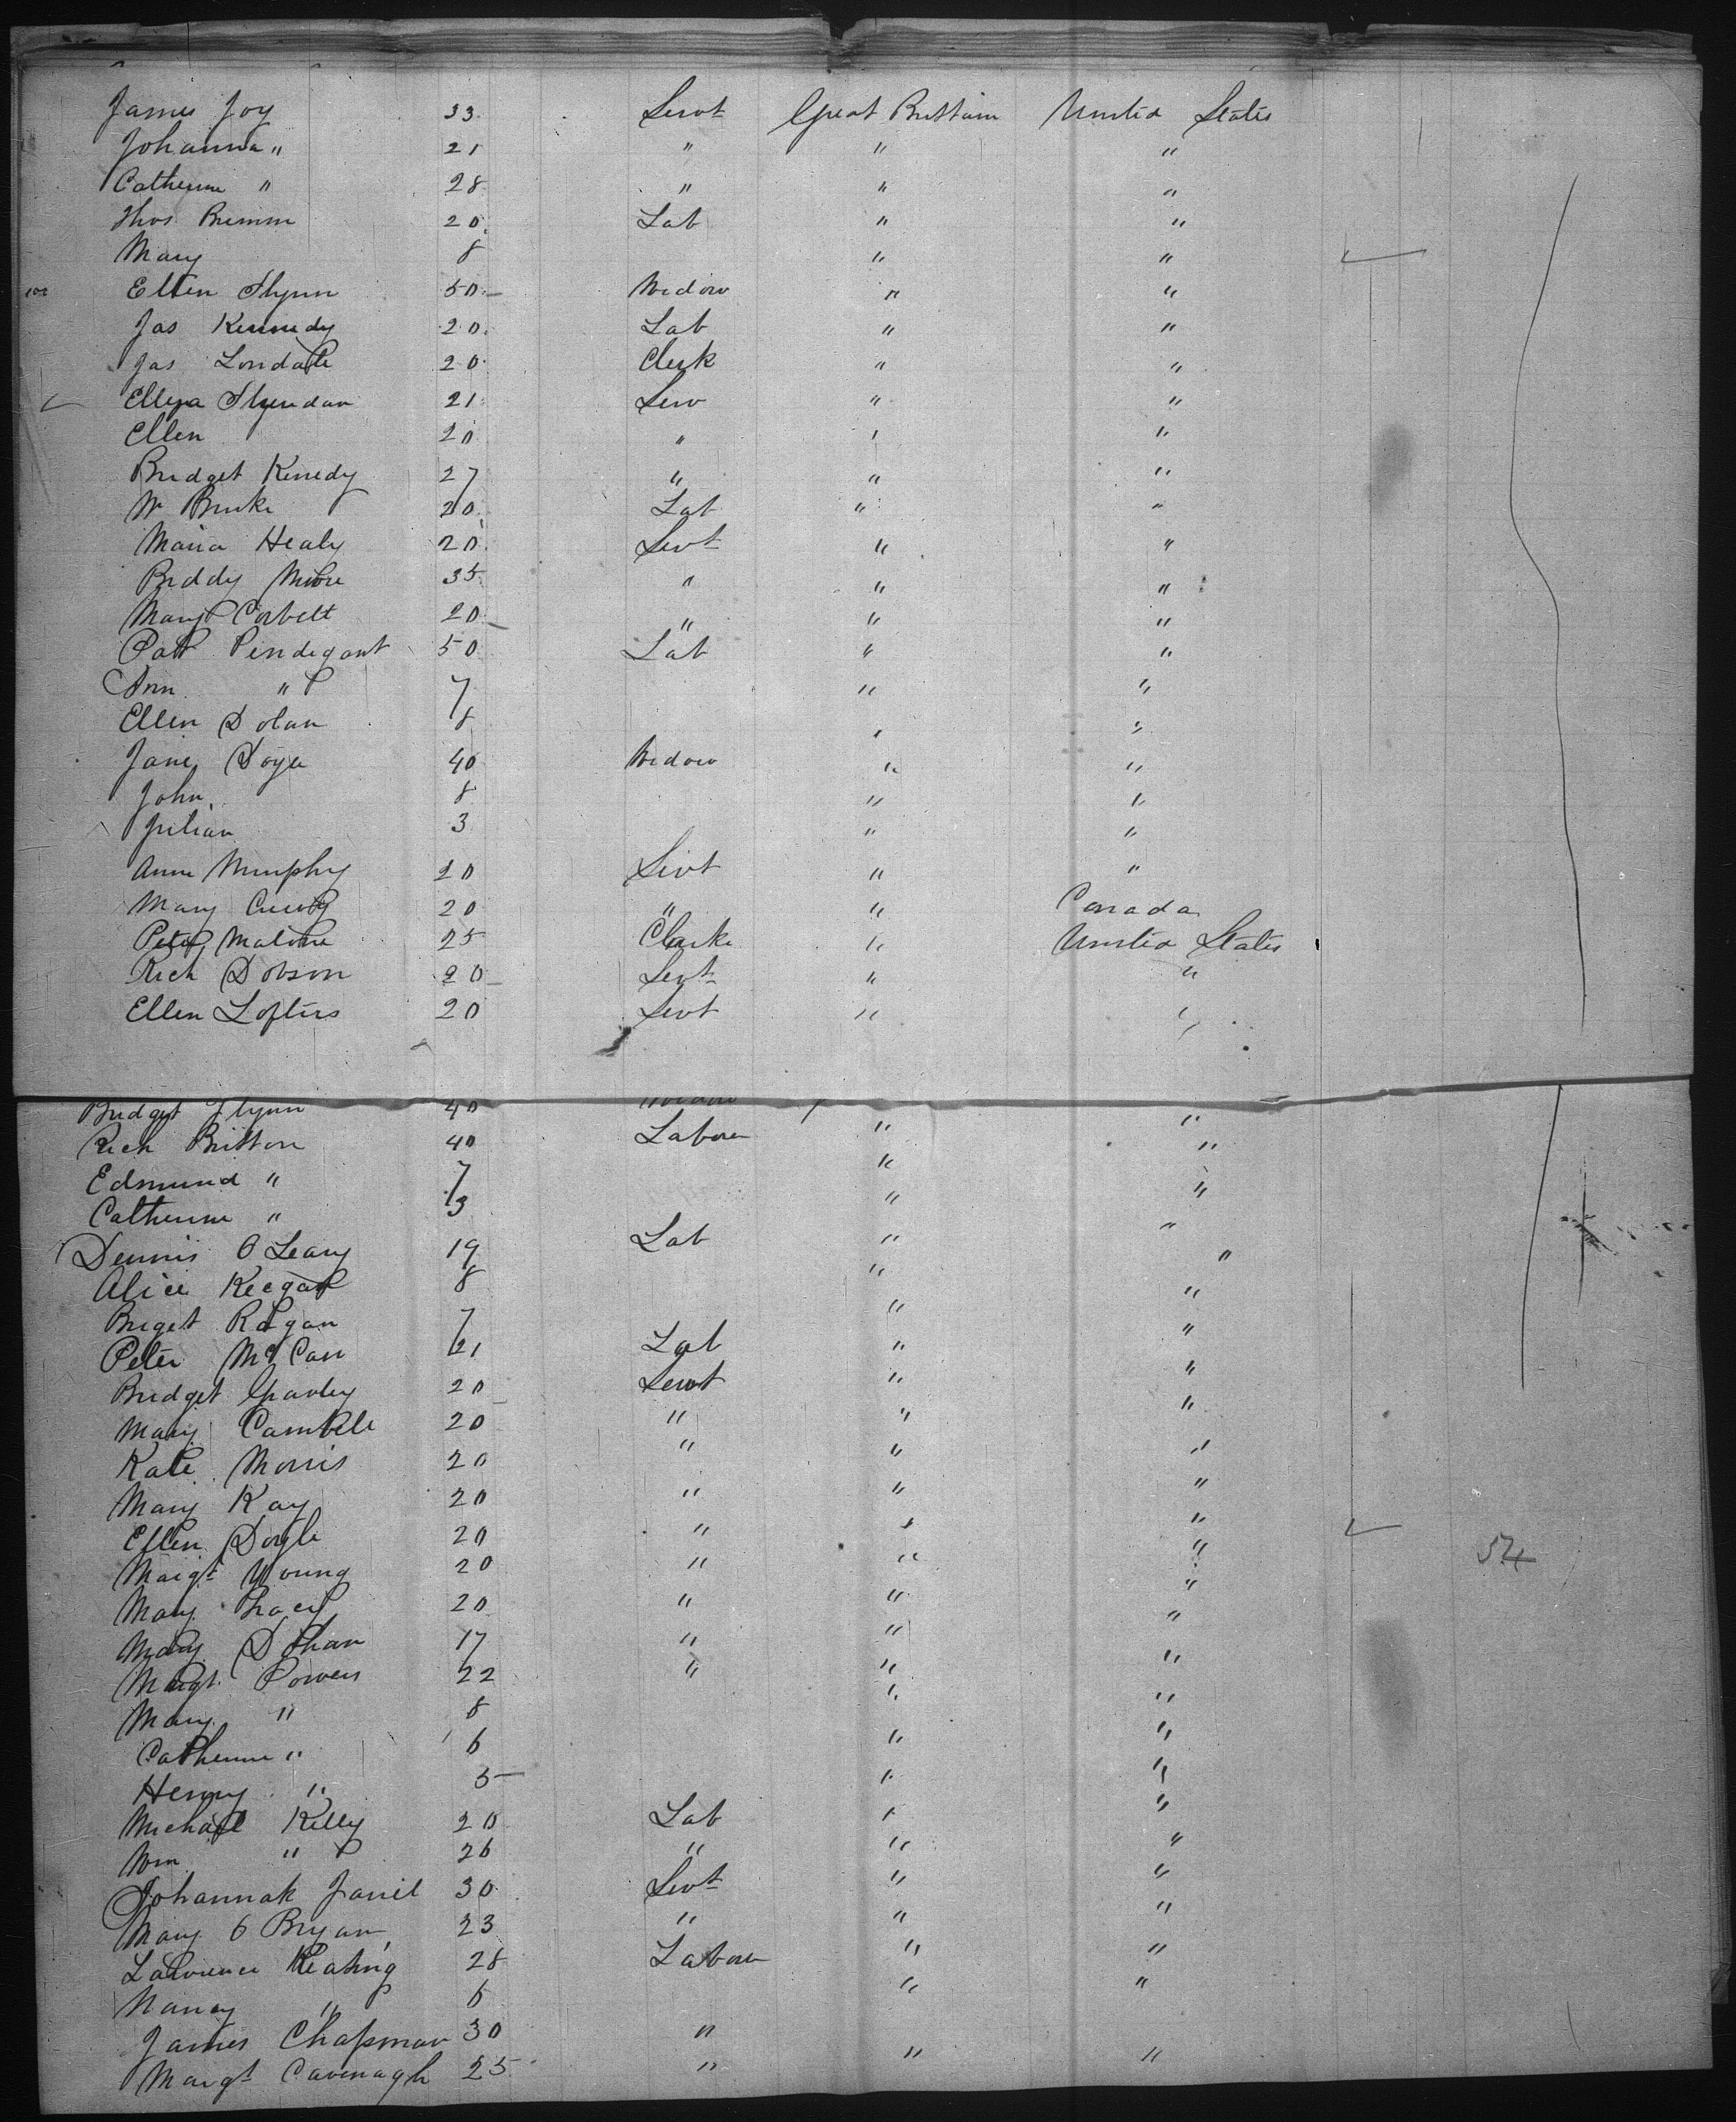 James Joy 33 Servt Great Brittain United States
Johanna " 21 " " "
Catherine " 28 " " "
Thos Brimm 20 Lab " "
Mary 8 " "
Ellen Flynn 50 Widow " "
Jas Kennedy 20 Lab " "
Jas 20 Clerk " "
Sheridan 21 Serv " "
Ellen 20 " " "
Bridget Kenedy 27 " " "
W Burke 20 Lab " "
Maria Healy 20 Servt " "
Biddy 35 " " "
Mary Corbett 20 " " "
Pat Pendegant 50 Lab " "
Ann " 7 " "
Ellen Dolan 8 " "
Jane Doyle 40 Widow " "
John 8 " "
3 " "
Anne Murphy 20 Servt " "
Mary 20 " " Canada
Peter Malone 25 Clarke " United States
Rich Dobson 20 Servt " "
Ellen Loftus 20 Servt " "
Bridget Flynn 40 Widow " "
Rich Britton 40 Laborer " "
Edmund " 7 " "
Catherine " 3 " "
Dennis O Leary 19 Lab " "
Alice Keegan 8 " "
Briget Ragan 7 " "
Peter McCan 21 Lab " "
Bridget 20 Servt " "
Mary Cambell 20 " " "
Kate Morris 20 " " "
Mary Kay 20 " " "
Ellen Doyle 20 " " "
Margt Young 20 " " "
Mary Tracy 20 " " "
Mary 17 " " "
Margt Powers 22 " " "
Mary " 8 " "
Catherine " 6 " "
Henry " 5 " "
Michael Kelly 20 Lab " "
Wm " 26 " " "
Johannah 30 Servt " "
Mary O Bryan 23 " " "
Lawrence Keating 28 Laborer " "
Nancy " 6 " "
James Chapman 30 "
Margt Cavenagh 25 " " "
54